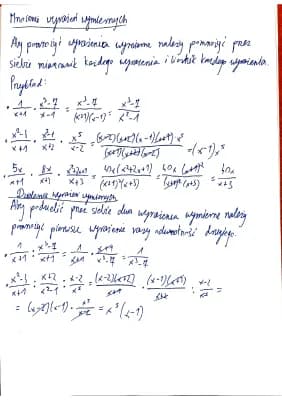 Mnożenie wyrażeń wymiernych
Aby pomnożyć wyrażenia wymierne należy pomnożyć przez
siebie mianownik każdego wyrażenia i licznik każdego wyrażenia.
Przykład:
• 1/x+1 · x³-7/x-1 = x³-7/(x+1)(x-1) = x³-7/x²-1
• x²-4/x+1 · x²-1/x+2 · x⁵/x-2 = (x-2)(x+2)(x-1)(x+1)·x⁵/(x+1)(x+2)(x-2) = (x-1)x⁵
• 5x/x+1 · 8x/x+1 · x²+2x+1/x+3 = 40x(x²+2x+1)/(x+1)²(x+3) = 40x(x+1)²/(x+1)²(x+3) = 40x/x+3
Dzielenie wyrażeń wymiernych
Aby podzielić przez siebie dwa wyrażenia wymierne należy
pomnożyć pierwsze wyrażenie razy odwrotność drugiego.
• 1/x+1 : x³-7/x+9 = 1/x+1 · x+9/x³-7 = 1/x³-7
• x²-4/x+1 : x+2/x²-1 : x-2/x⁵ = (x-2)(x+2)/x+1 · (x-1)(x+1)/x+2 : x-2/x⁵ =
= (x-2)(x-1) · x⁵/x-2 = x⁵(x-1)